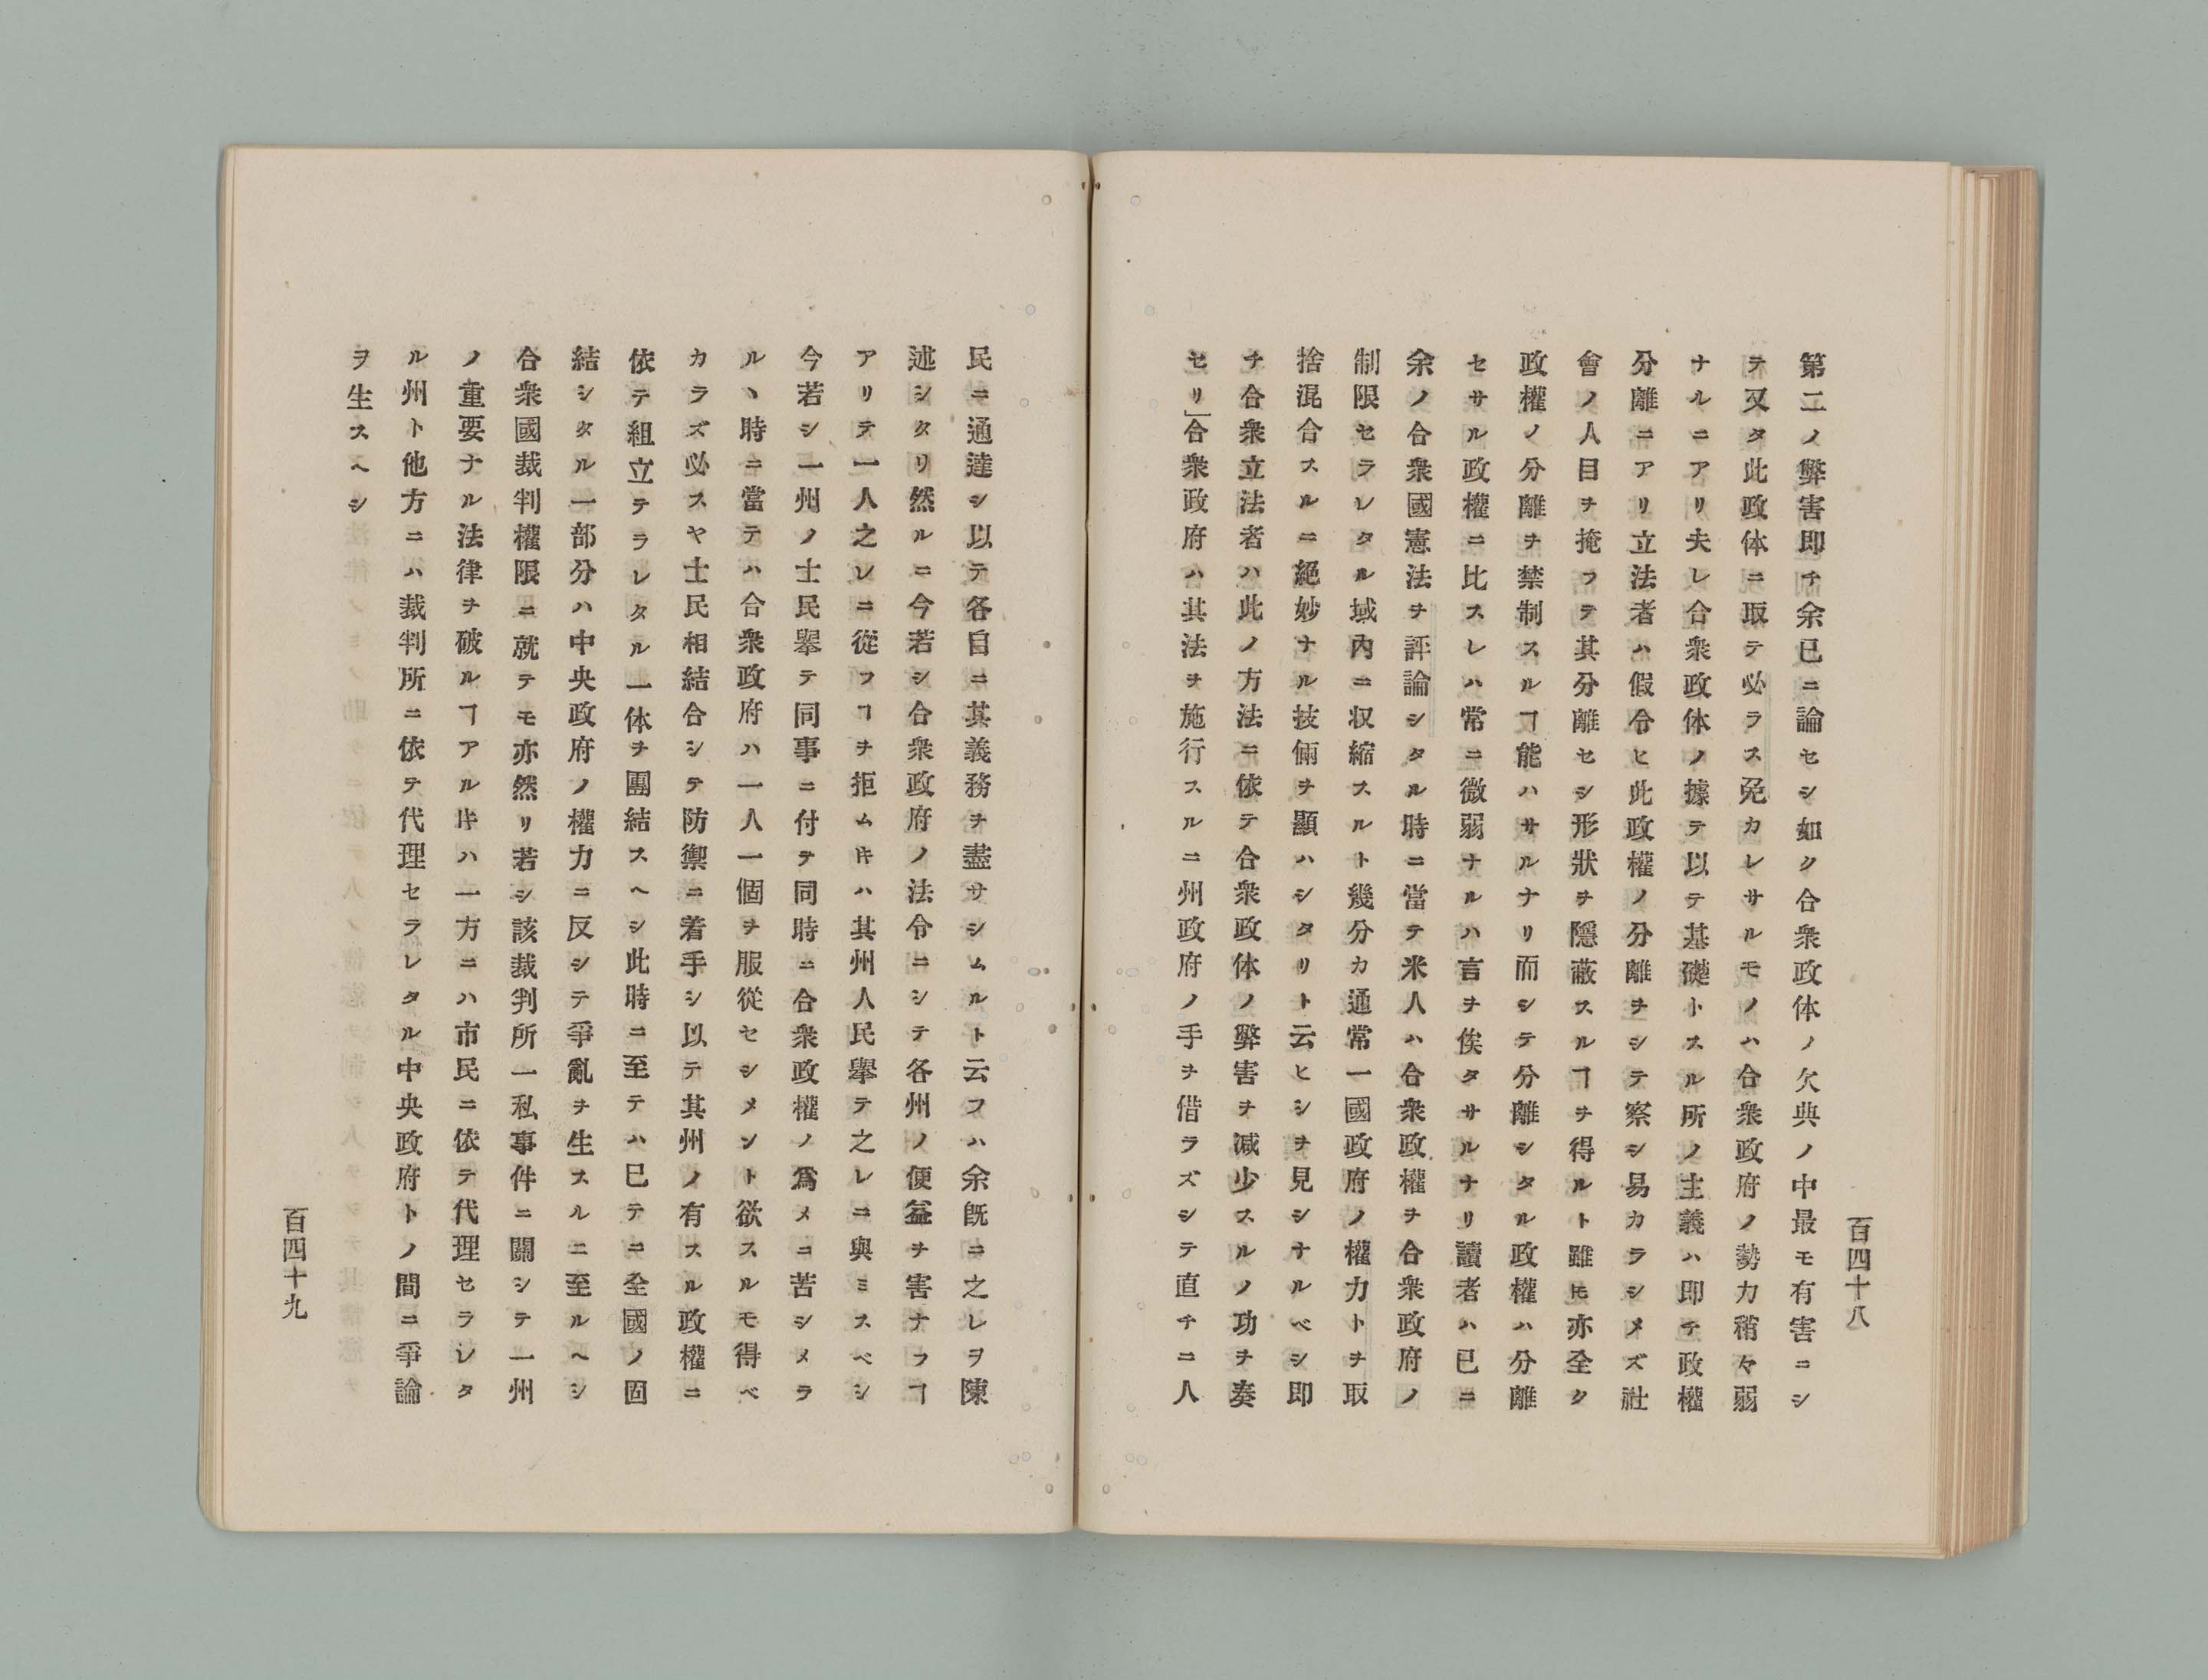 百四十八
第二ノ弊害即チ余已ニ論セシ如ク合衆政体ノ欠典ノ中最モ有害ニシ
テ又タ此政体ニ取テ必ラス免カレサルモノハ合衆政府ノ勢力稍々弱
ナルニアリ夫レ合衆政体ノ據テ以テ基礎トスル所ノ主義ハ即チ政權
分離ニアリ立法者ハ假令ヒ此政權ノ分離ヲシテ察シ易カラシメズ社
會ノ人目ヲ掩フテ其分離セシ形狀ヲ隱蔽スルヿヲ得ルト雖𪜈亦全ク
政權ノ分離ヲ禁制スルヿ能ハサルナリ而シテ分離シタル政權ハ分離
セサル政權ニ比スレハ常ニ微弱ナルハ言ヲ俟タサルナリ讀者ハ已ニ
余ノ合衆國憲法ヲ評論シタル時ニ當テ米人ハ合衆政權ヲ合衆政府ノ
制限セラレタル域內ニ収縮スルト幾分カ通常一國政府ノ權力トヲ取
捨混合スルニ絕妙ナル技倆ヲ顯ハシタリト云ヒシヲ見シナルベシ即
チ合衆立法者ハ此ノ方法ニ依テ合衆政体ノ弊害ヲ減少スルノ功ヲ奏
セリ」合衆政府ハ其法ヲ施行スルニ州政府ノ手ヲ借ラズシテ直チニ人
民ニ通達シ以テ各自ニ其義務ヲ盡サシムルト云フハ余既ニ之レヲ陳
述シタリ然ルニ今若シ合衆政府ノ法令ニシテ各州ノ便益ヲ害ナフヿ
アリテ一人之レニ從フヿヲ拒ムキハ其州人民擧テ之レニ與ミスベシ
今若シ一州ノ士民擧テ同事ニ付テ同時ニ合衆政權ノ爲メニ苦シメラ
ルヽ時ニ當テハ合衆政府ハ一人一個ヲ服從セシメント欲スルモ得ベ
カラズ必スヤ士民相結合シテ防禦ニ着手シ以テ其州ノ有スル政權ニ
依テ組立テラレタル一体ヲ團結スヘシ此時ニ至テハ已テニ全國ノ固
結シタル一部分ハ中央政府ノ權力ニ反シテ爭亂ヲ生スルニ至ルヘシ
合衆國裁判權限ニ就テモ亦然リ若シ該裁判所一私事件ニ關シテ一州
ノ重要ナル法律ヲ破ルヿアルキハ一方ニハ市民ニ依テ代理セラレタ
ル州ト他方ニハ裁判所ニ依テ代理セラレタル中央政府トノ間ニ爭論
ヲ生スヘシ
百四十九